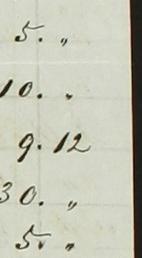 5. "
10. "
9.12
30. "
5. "